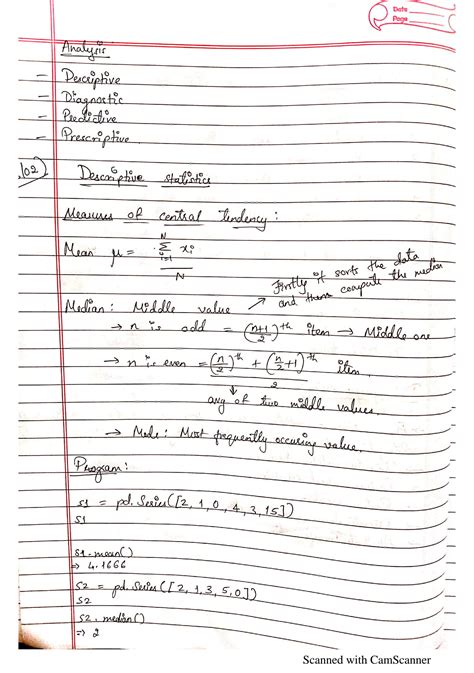 Date
Page
Analysis
- Descriptive
- Diagnostic
- Predictive
- Prescriptive.
Descriptive statistics
Measures of central tendency :
Mean μ = N Σ i=1 xi / N
Firstly it sorts the data
and then compute the median
Median : Middle value
→ n is odd = (n+1/2)th item → Middle one
→ n is even = (n/2)th + (n/2+1)th / 2 item.
avg of two middle values.
→ Mode : Most frequently occuring value.
Program :
S1 = pd.Series([2, 1, 0, 4, 3, 15])
S1
S1.mean()
⇒ 4.1666
S2 = pd.Series([2, 1, 3, 5, 0])
S2
S2.median()
⇒ 2
Scanned with CamScanner